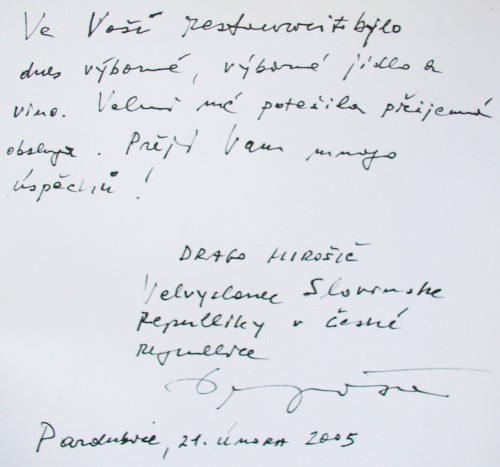 Ve Vaší restauraci to bylo
dnes výborné, výborné jídlo a
víno. Velmi mě potešila příjemná
obsluga. Přeji Vam mnogo
úspěchů!
DRAGO MIROŠIČ
Velvyslanec Slovinske
republiky v České
republice
Pardubice, 21. ÚNORA 2005